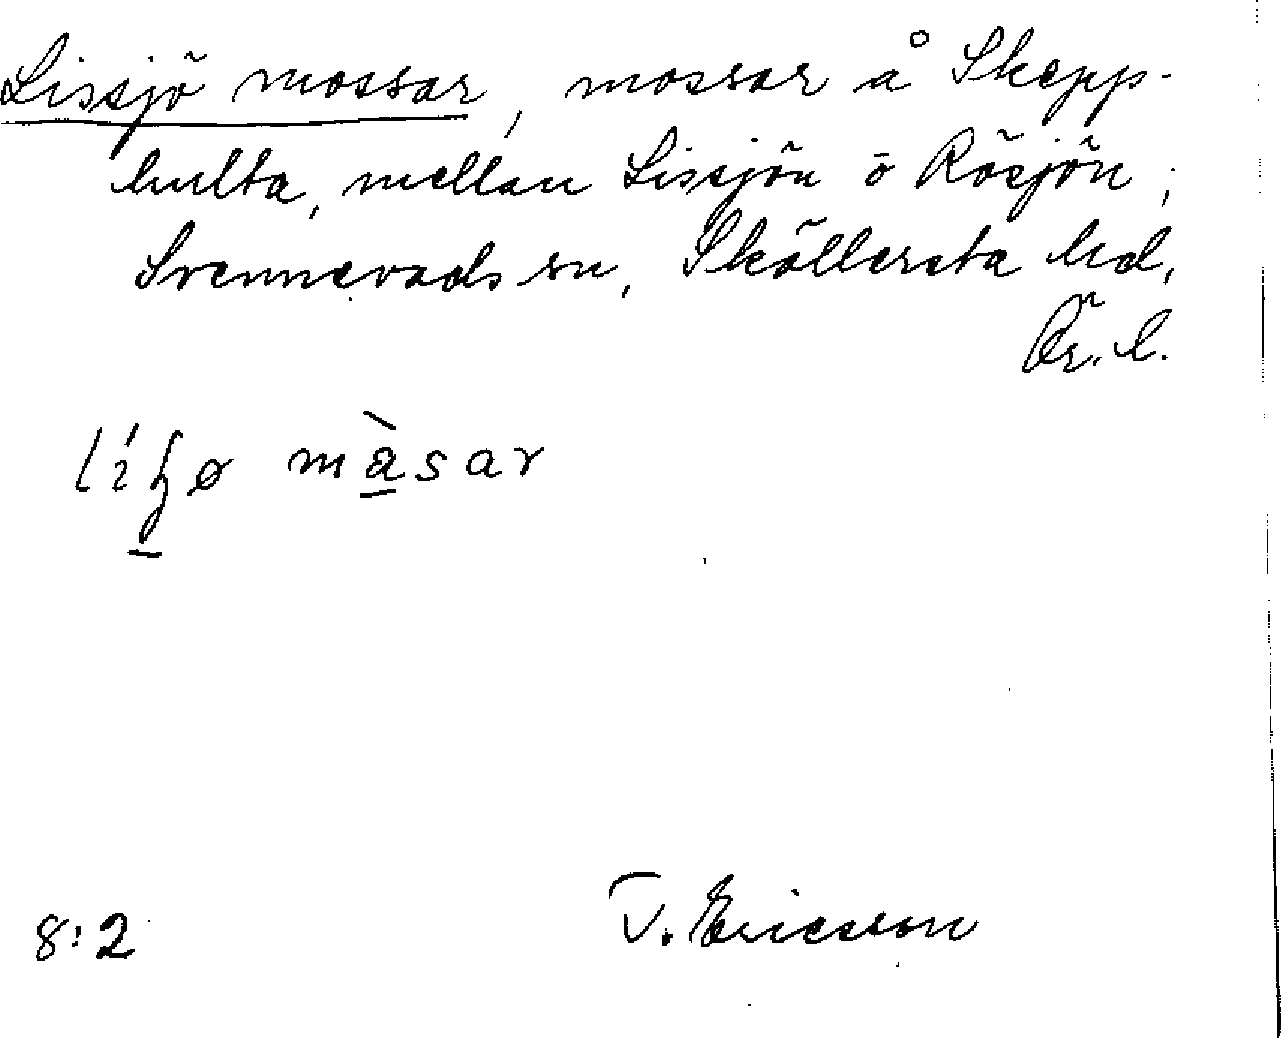 Lissjö mossar, mossar å Skepp-
hulta, mellan Lissjön o Rösjön,
Svennevads sn, Sköllersta hd,
Ör. l.
måsar
8:2 T. Ericsson